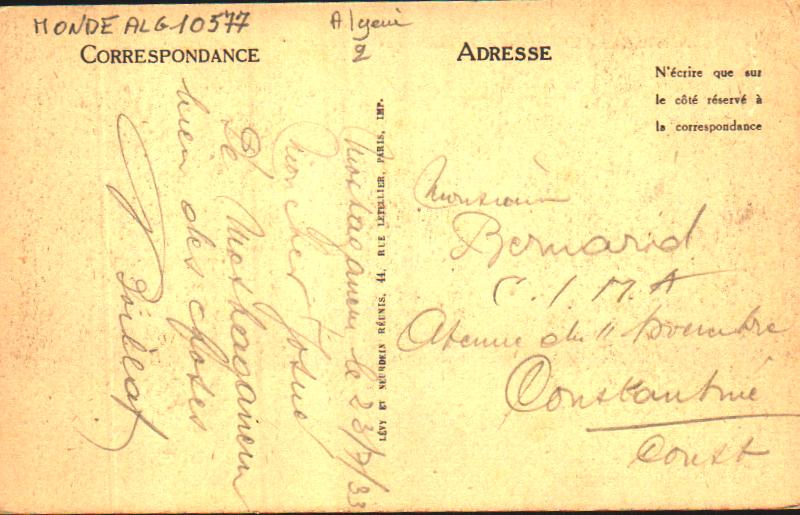 MONDE ALG 10577
Algerie
2
CORRESPONDANCE
ADRESSE
N'écrire que sur
le côté réservé à
la correspondance
Mostaganem le 23/9/33
Mon cher Josué
De Mostaganem
bien des choses
LÉVY ET NEURDEIN RÉUNIS, 44, RUE LETELLIER, PARIS, IMP.
Monsieur
Bernard
C. I M A
Avenue du 11 Novembre
Constantine
Const